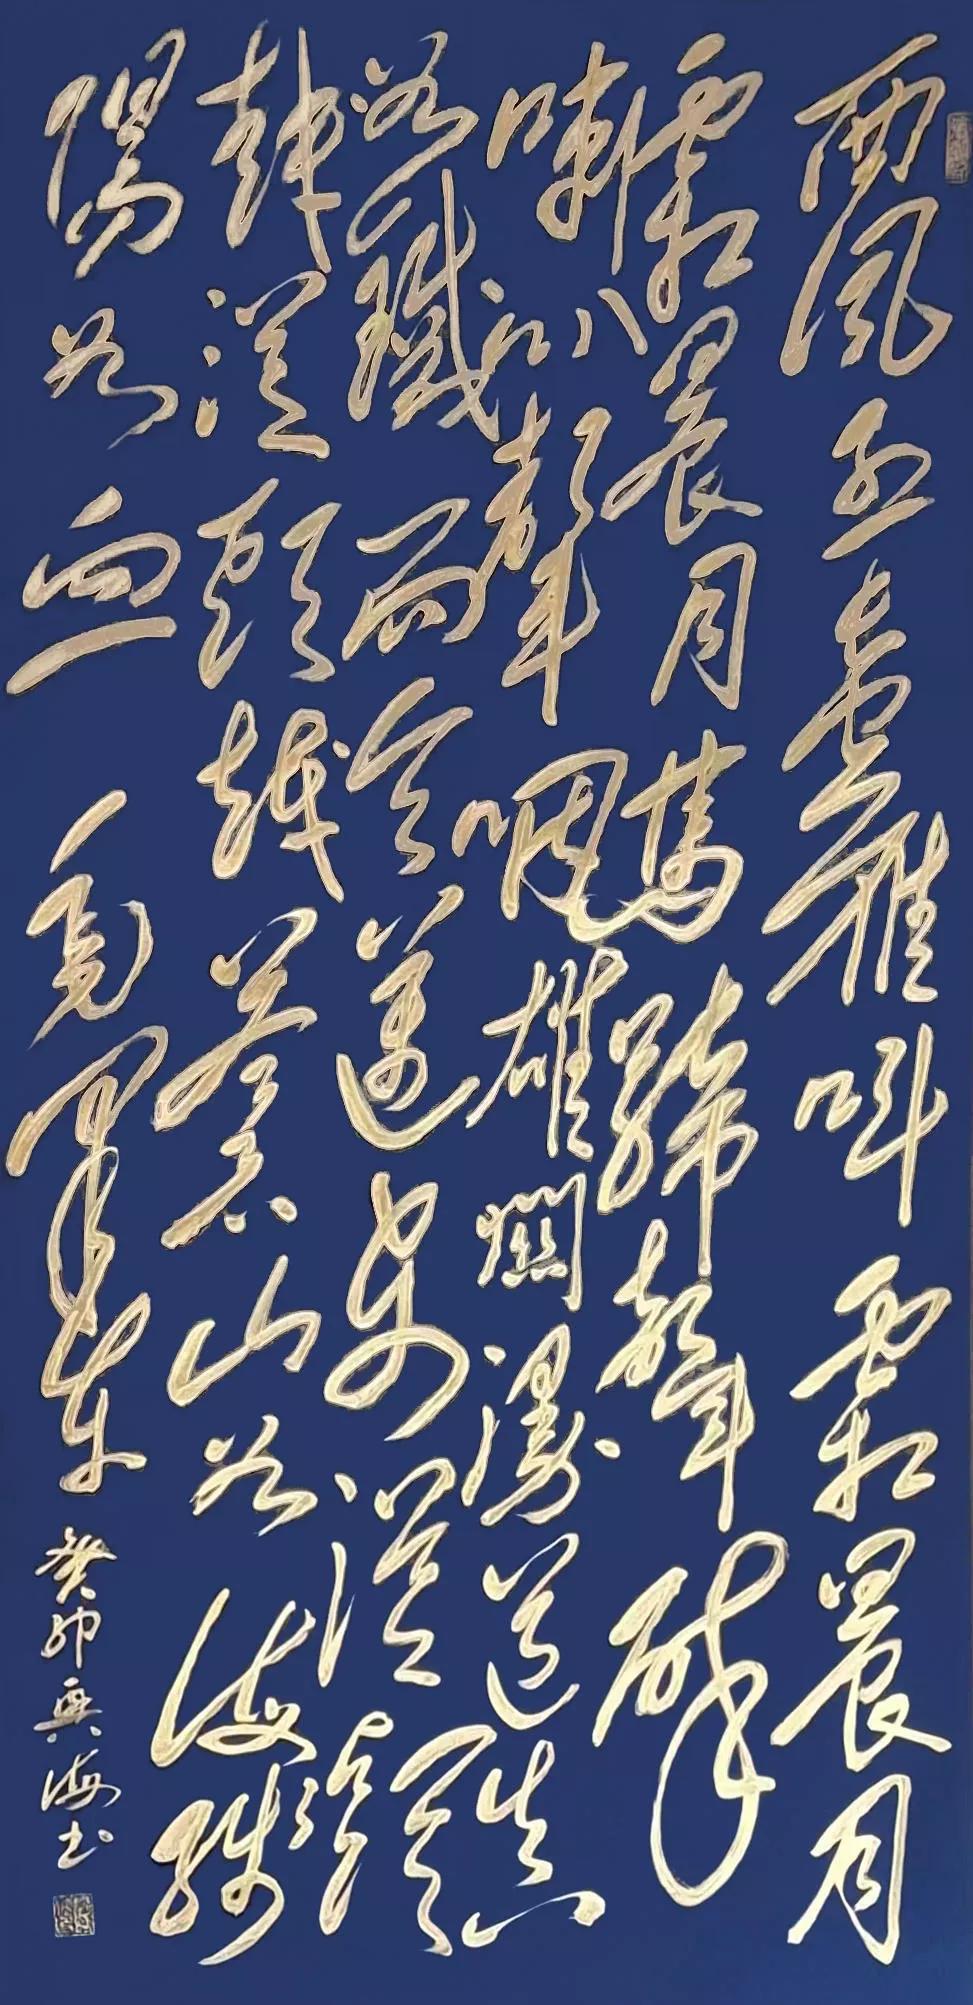 西風烈長空雁叫霜晨月
霜晨月馬蹄聲碎
喇叭聲咽雄關漫道真
如鐵而今邁步從頭
越從頭越蒼山如海殘
陽如血 毛澤東 癸卯興海書